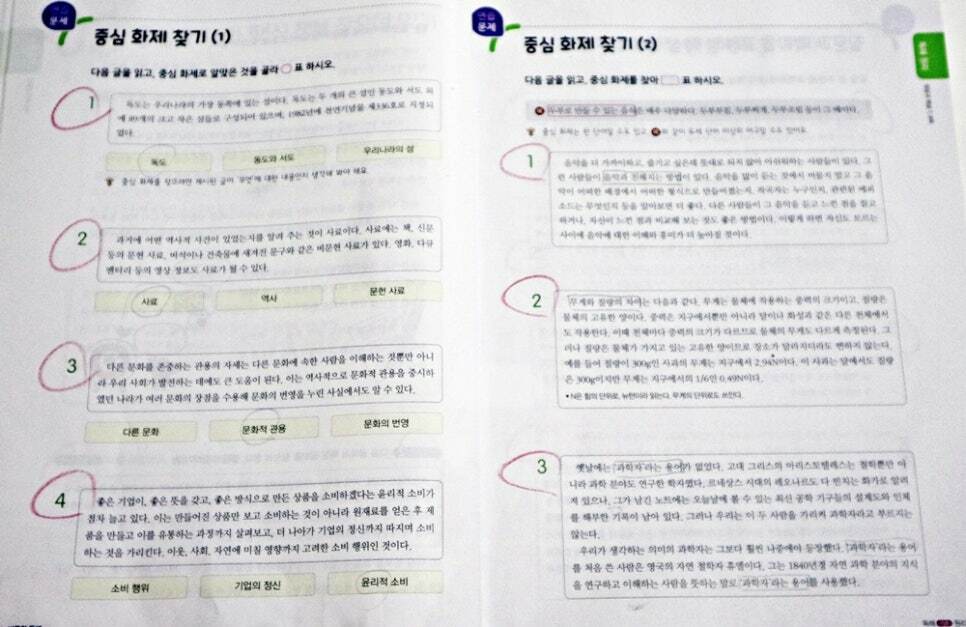 연습
문제
중심 화제 찾기 (1)
다음 글을 읽고, 중심 화제로 알맞은 것을 골라 ○ 표 하시오.
1
독도는 우리나라의 가장 동쪽에 있는 섬이다. 독도는 두 개의 큰 섬인 동도와 서도 외
에 89개의 크고 작은 섬들로 구성되어 있으며, 1982년에 천연기념물 제336호로 지정되
었다.
독도 동도와 서도 우리나라의 섬
중심 화제를 찾으려면 제시된 글이 '무엇'에 대한 내용인지 생각해 봐야 해요.
2
과거에 어떤 역사적 사건이 있었는지를 알려 주는 것이 사료이다. 사료에는 책, 신문
등의 문헌 사료, 비석이나 건축물에 새겨진 문구와 같은 비문헌 사료가 있다. 영화, 다큐
멘터리 등의 영상 정보도 사료가 될 수 있다.
사료 역사 문헌 사료
3
다른 문화를 존중하는 관용의 자세는 다른 문화에 속한 사람을 이해하는 것뿐만 아니
라 우리 사회가 발전하는 데에도 큰 도움이 된다. 이는 역사적으로 문화적 관용을 중시하
였던 나라가 여러 문화의 장점을 수용해 문화의 번영을 누린 사실에서도 알 수 있다.
다른 문화 문화적 관용 문화의 번영
4
좋은 기업이, 좋은 뜻을 갖고, 좋은 방식으로 만든 상품을 소비하겠다는 윤리적 소비가
점차 늘고 있다. 이는 만들어진 상품만 보고 소비하는 것이 아니라 원재료를 얻은 후 제
품을 만들고 이를 유통하는 과정까지 살펴보고, 더 나아가 기업의 정신까지 따지며 소비
하는 것을 가리킨다. 이웃, 사회, 자연에 미칠 영향까지 고려한 소비 행위인 것이다.
소비 행위 기업의 정신 윤리적 소비
연습
문제
중심 화제 찾기 (2)
다음 글을 읽고, 중심 화제를 찾아 표 하시오.
예 두부로 만들 수 있는 음식은 매우 다양하다. 두부부침, 두부찌개, 두부조림 등이 그 예이다.
중심 화제는 한 단어일 수도 있고, 예와 같이 둘에 단어 이상의 어구일 수도 있어요.
1
음악을 더 가까이하고, 즐기고 싶은데 뜻대로 되지 않아 아쉬워하는 사람들이 있다. 그
런 사람들이 음악과 친해지는 방법이 있다. 음악을 많이 듣는 것에서 머물지 말고 그 음
악이 어떠한 배경에서 어떠한 형식으로 만들어졌는지, 작곡자는 누구인지, 관련된 에피
소드는 무엇인지 등을 알아보면 더 좋다. 다른 사람들이 그 음악을 듣고 느낀 점을 읽고
하거나, 자신이 느낀 점과 비교해 보는 것도 좋은 방법이다. 이렇게 하면 자신도 모르는
사이에 음악에 대한 이해와 흥미가 더 높아질 것이다.
2
무게와 질량의 차이는 다음과 같다. 무게는 물체에 작용하는 중력의 크기이고, 질량은
물체의 고유한 양이다. 중력은 지구에서뿐만 아니라 달이나 화성과 같은 다른 천체에서
도 작용한다. 이때 천체마다 중력의 크기가 다르므로 물체의 무게도 다르게 측정된다. 그
러나 질량은 물체가 가지고 있는 고유한 양이므로 장소가 달라지더라도 변하지 않는다.
예를 들어 질량이 300g인 사과의 무게는 지구에서 2.94N이다. 이 사과는 달에서도 질량
은 300g이지만 무게는 지구에서의 1/6인 0.49N이다.
• N은 힘의 단위로, 뉴턴이라 읽는다. 무게의 단위로도 쓰인다.
3
옛날에는 '과학자'라는 용어가 없었다. 고대 그리스의 아리스토텔레스는 철학뿐만 아
니라 과학 분야도 연구한 학자였다. 르네상스 시대의 레오나르도 다 빈치는 화가로 알려
져 있으나, 그가 남긴 노트에는 오늘날에 볼 수 있는 최신 공학 기구들의 설계도와 인체
를 해부한 기록이 남아 있다. 그러나 우리는 이 두 사람을 가리켜 과학자라고 부르지는
않는다.
우리가 생각하는 의미의 과학자는 그보다 훨씬 나중에야 등장했다. '과학자'라는 용어
를 처음 쓴 사람은 영국의 자연 철학자 휴엘이다. 그는 1840년경 자연 과학 분야의 지식
을 연구하고 이해하는 사람을 뜻하는 말로 '과학자'라는 용어를 사용했다.